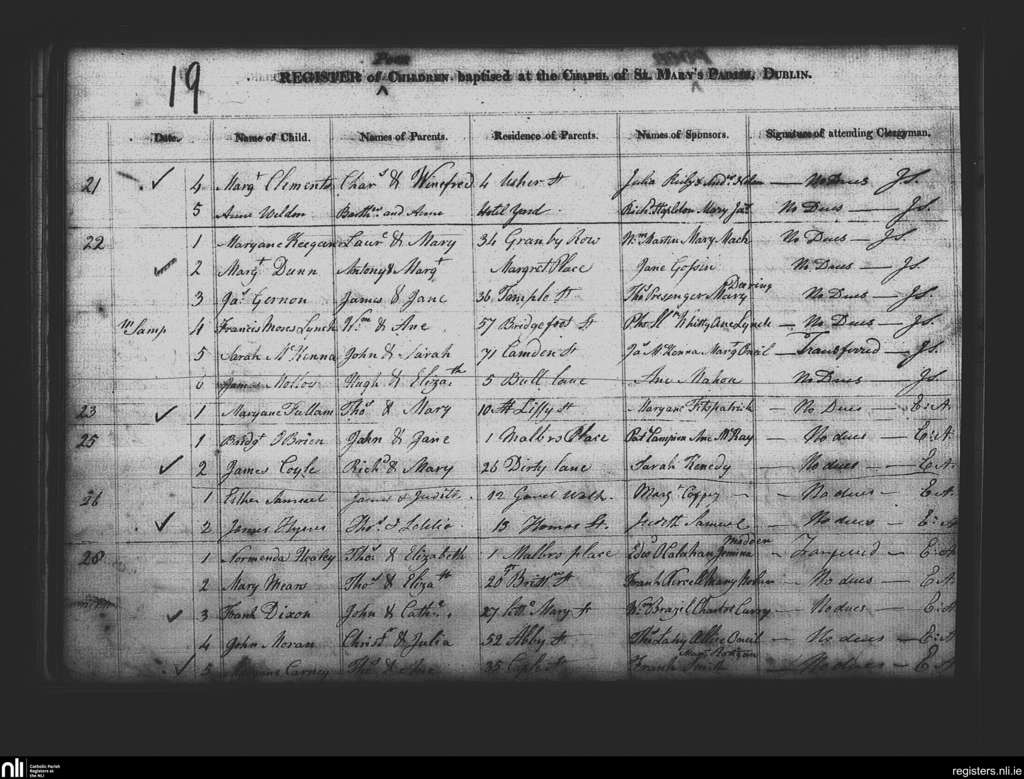 19
Poor
REGISTER of CHILDREN baptised at the CHAPEL of St. MARY'S PARISH, DUBLIN.
Date. Name of Child. Names of Parents. Residence of Parents. Names of Sponsors. Signature of attending Clergyman.
21 ✓ 4 Margt Clements Chars & Winefred 4 Usher St Julia Reily & Andw — No Dues J.S.
5 Anne Weldon Barthw and Anne Hotel Yard Richd Mary No Dues — J.S.
22 1 Maryane Keegan Laurc & Mary 34 Granby Row Wm Martin Mary Mack No Dues — J.S.
✓ 2 Margt Dunn Antony & Margt Margret Place Jane No Dues — J.S.
3 Jas Gernon James & Jane 36 Temple St Thos Mary Deering No Dues — J.S.
4 Francis Moses Lynch Wm & Ane 57 Bridgefoot St Whitty Ane Lynch — No Dues — J.S.
5 Sarah McKenna John & Sarah 71 Camden St Jas McKenna Margt — Transferred — J.S.
6 James Hugh & Elizath 5 Bull lane Ane Mahon No Dues — J.S.
23 ✓ 1 Maryane Fallam Thos & Mary 10 Liffy St Maryane Fitzpatrick — No Dues — E:A
25 1 Bridgt OBrien John & Jane 1 Malbrs Place Patt Lampion Ane McKay — No dues — E:A:
✓ 2 James Coyle Richd & Mary 26 Dirty lane Sarah Kenedy — No dues — E.A.
26 1 Esther Samuel James & Judith 12 Gravel Walk Margt Coffey — No dues — E:A.
✓ 2 James Flynn Thos & 13 Thomas St. Judith Samuel — No dues — E:A
28 1 Normenda Healey Thos & Elizabeth 1 Mulbrs place Edwd OCalahan Jemima Madden — — E:A
2 Mary Mears Thos & Elizath 20 St Frank Mary Nolan — No dues — E.A
✓ 3 Frank Dixon John & Cathe 27 Mary St Wm Brazil Charlot Curry — No dues — E:A
4 John Moran Christr & Julia 52 Abby St Thos — No dues — E:A
✓ 5 Maryane Carney Thos & Ane 35 St Frank Smith — No dues — E.A
nli
Catholic Parish
Registers at
the NLI
registers.nli.ie